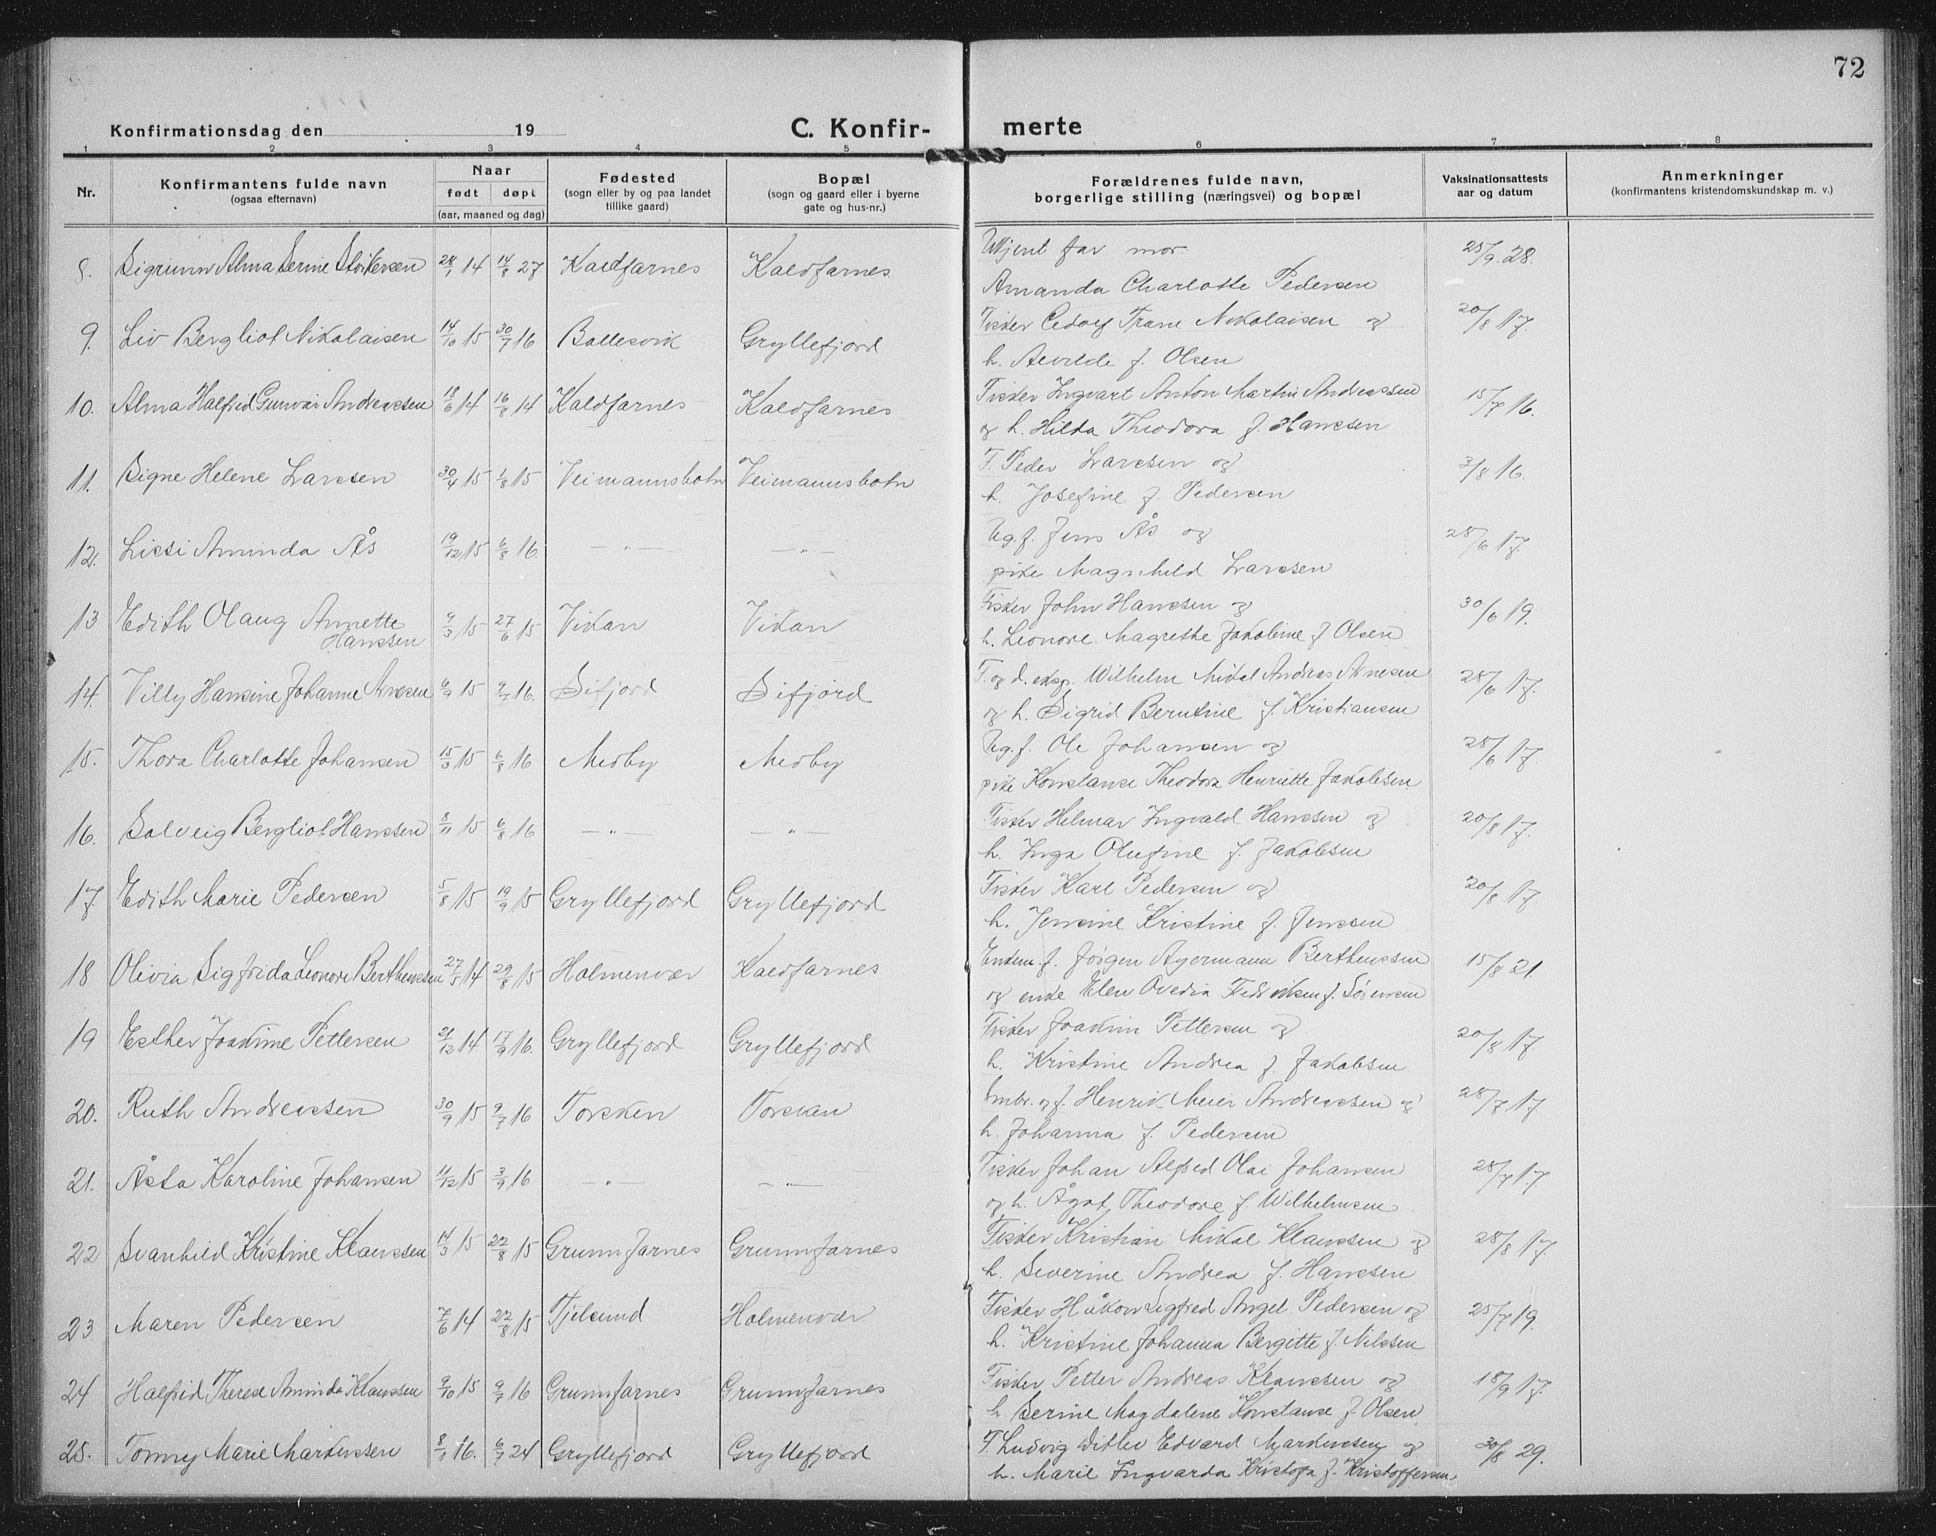 72
Konfirmationsdag den 19
C. Konfir- merte
1 2 3 4 5 6 7 8
Nr.
Konfirmantens fulde navn
(ogsaa efternavn)
Naar
født døpt
(aar, maaned og dag)
Fødested
(sogn eller by og paa landet
tillike gaard)
Bopæl
(sogn og gaard eller i byerne
gate og hus-nr.)
Forældrenes fulde navn,
borgerlige stilling (næringsvei) og bopæl
Vaksinationsattests
aar og datum
Anmerkninger
(konfirmantens kristendomskundskap m. v.)
8. Sigrunn Alma Serine 14 14/8 27 Kaldfarnes Kaldfarnes Ukjent far mor. 25/9.28.
Amanda Charlotte Pedersen
9. Liv Bergliot Nikolaisen 14/10 15 30/7 16 Ballesvik Gryllefjord Fisker Nikolaisen og 20/8 17.
h. f. Olsen
10. Alma Halfrid Gunvor Andreassen 18/6 14 16/8 14 Kaldfarnes Kaldfarnes Fisker Ingvart Anton Martin Andreassen 15/7 16.
og h. Hilda Theodora f. Hanssen
11. Signe Helene Larssen 30/4 15 1/8 15 Veimannsbotn Veimannsbotn F. Peder Larssen og 3/8 16.
h. Josefine f. Pedersen
12. Lissi Aminda Ås 19/12 15 6/8 16. —"— —"— Ug.f. Jens Ås og 28/6 17.
pike Magnhild Larssen
13 Edith Olaug Annette 9/3 15 27/6 15 Vikan Vikan Fisker John Hanssen og 30/6 19.
Hanssen h. Leonore Magrethe Jakobine f Olsen
14. Villy Hansine Johanne Arnesen 6/9 15 9/7 16. Sifjord Sifjord F. og d. eksp. Wilhelm Mikal Andreas Arnesen 28/6 17.
og h. Sigrid Berntine f. Kristiansen
15. Thora Charlotte Johansen 15/3 15 6/8 16 Medby Medby Ug.f. Ole Johansen og 28/6 17.
pike Konstanse Theodora Henriette Jakobsen
16. Solveig Bergliot Hanssen 8/11 15 6/8 16 —"— —"— Fisker Helmer Ingvald Hanssen og 20/8 17.
h. Inga Olufine f. Jakobsen
17. Edith Marie Pedersen 5/8 15 19/9 15 Gryllefjord Gryllefjord Fisker Karl Pedersen og 20/8 17.
h. Jensine Kristine f. Jenssen
18 Olivia Sigfrida Leonore Berthenssen 27/5 14 29/8 15 Holmenvær Kaldfarnes Enkem. f. Jørgen Agermann Berthenssen 15/8 21
og enke Elen Ovedia f. Sørensen
19 Esther Joakime Pettersen 21/12 14 17/9 16. Gryllefjord Gryllefjord Fisker Joakim Pettersen og 20/8 17.
h. Kristine Andrea f. Jakobsen
20. Ruth Andreassen 30/9 15 9/7 16 Torsken Torsken Småbr. og f. Henrik Meier Andreassen og 28/7 17
h. Johanna f. Pedersen
21. Åsta Karoline Johansen 11/12 15 3/9 16 —"— —"— Fisker Johan Alfred Olai Johansen 28/7 17.
og h. Ågot Theodore f. Wilhelmsen
22 Svanhild Kristine Klaussen 14/3 15 22/8 15 Grunnfarnes Grunnfarnes Fisker Kristian Mikal Klaussen og 28/8 17.
h. Severine Andrea f. Hanssen
23 Maren Pedersen 7/6 14 22/8 15 Tjelsund Holmenvær Fisker Håkon Sigfred Angel Pedersen og 25/7 19.
h. Kristine Johanna Bergitte f. Nilssen
24 Halfrid Therese Aminda Klaussen 9/10 15 9/7 16 Grunnfarnes Grunnfarnes Fisker Petter Andreas Klaussen og 18/9 17.
h. Serine Magdalene Konstanse f. Olsen
25. Tonny Marie Markussen 8/1 16. 6/7 24 Gryllefjord Gryllefjord F. Ludvig Ditlev Edvard Markussen og 30/8 29.
h. Marie Ingvarda Kristofa f. Kristoffersen